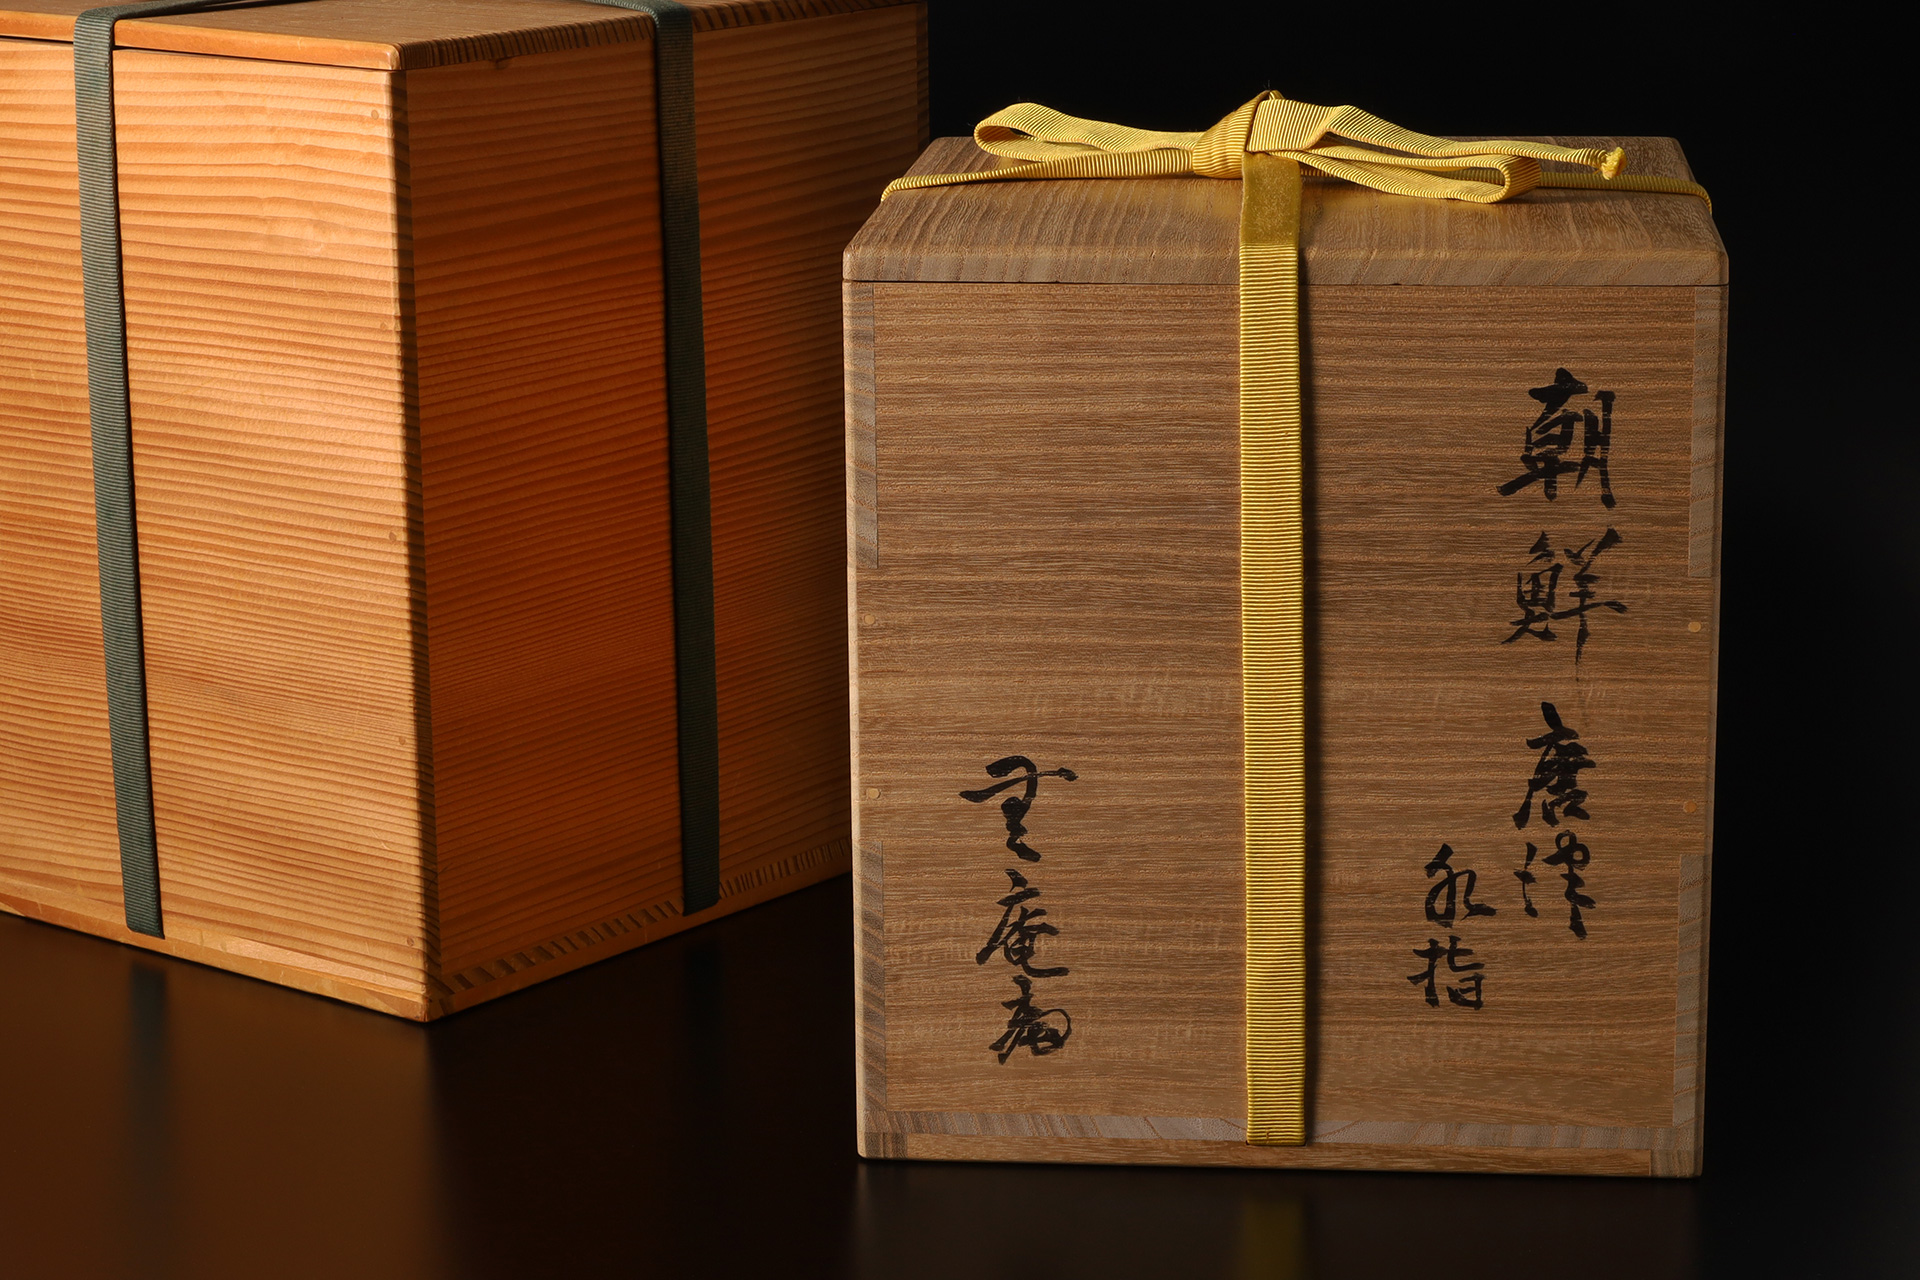 朝鮮
唐津
水指
無庵